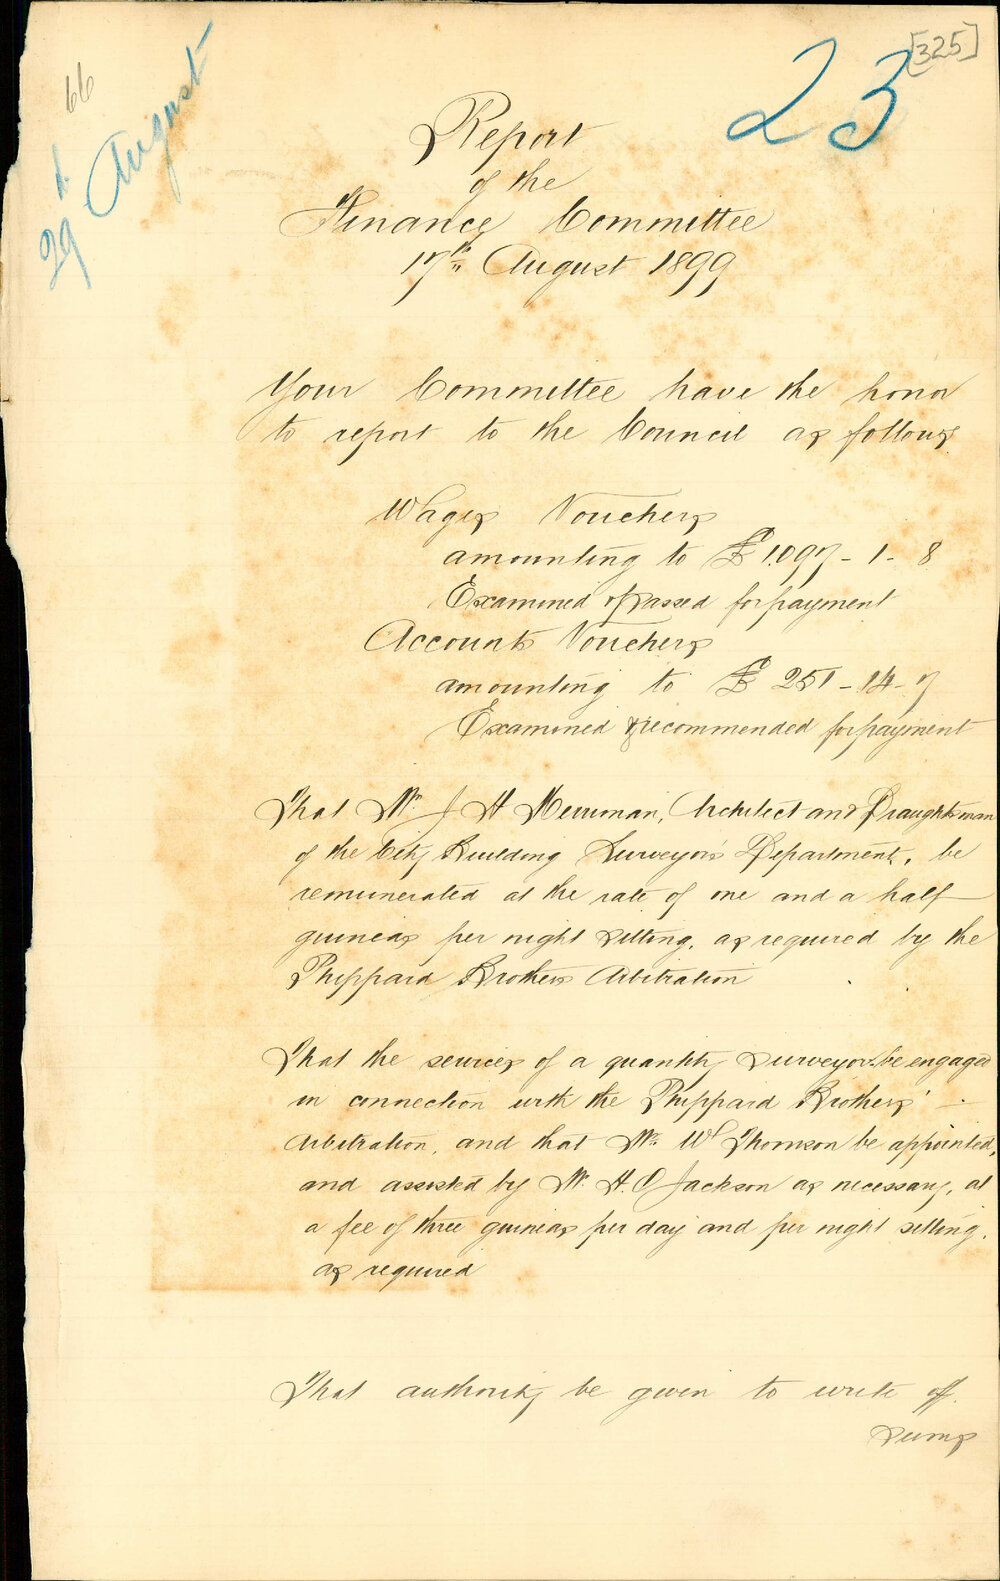 [325]
23
66
1.
29 August
Report
of the
Finance Committee
17th August 1899
Your Committee have the honor
to report to the Council as follows
Wages Vouchers
amounting to £1097-1-8
Examined & passed for payment
Accounts Vouchers
amounting to £251-14-7
Examined & recommended for payment
That Mr. J H Merriman, Architect and Draughtsman
of the City Building Surveyor's Department, be
remunerated at the rate of one and a half
guineas per night sitting, as required by the
Phippard Brothers Arbitration
That the services of a quantity surveyor be engaged
in connection with the Phippard Brothers'
Arbitration, and that Mr. Wl Thomson be appointed,
and assisted by Mr. H. O Jackson as necessary, at
a fee of three guineas per day and per night sitting,
as required
That authority be given to write off.
Sums